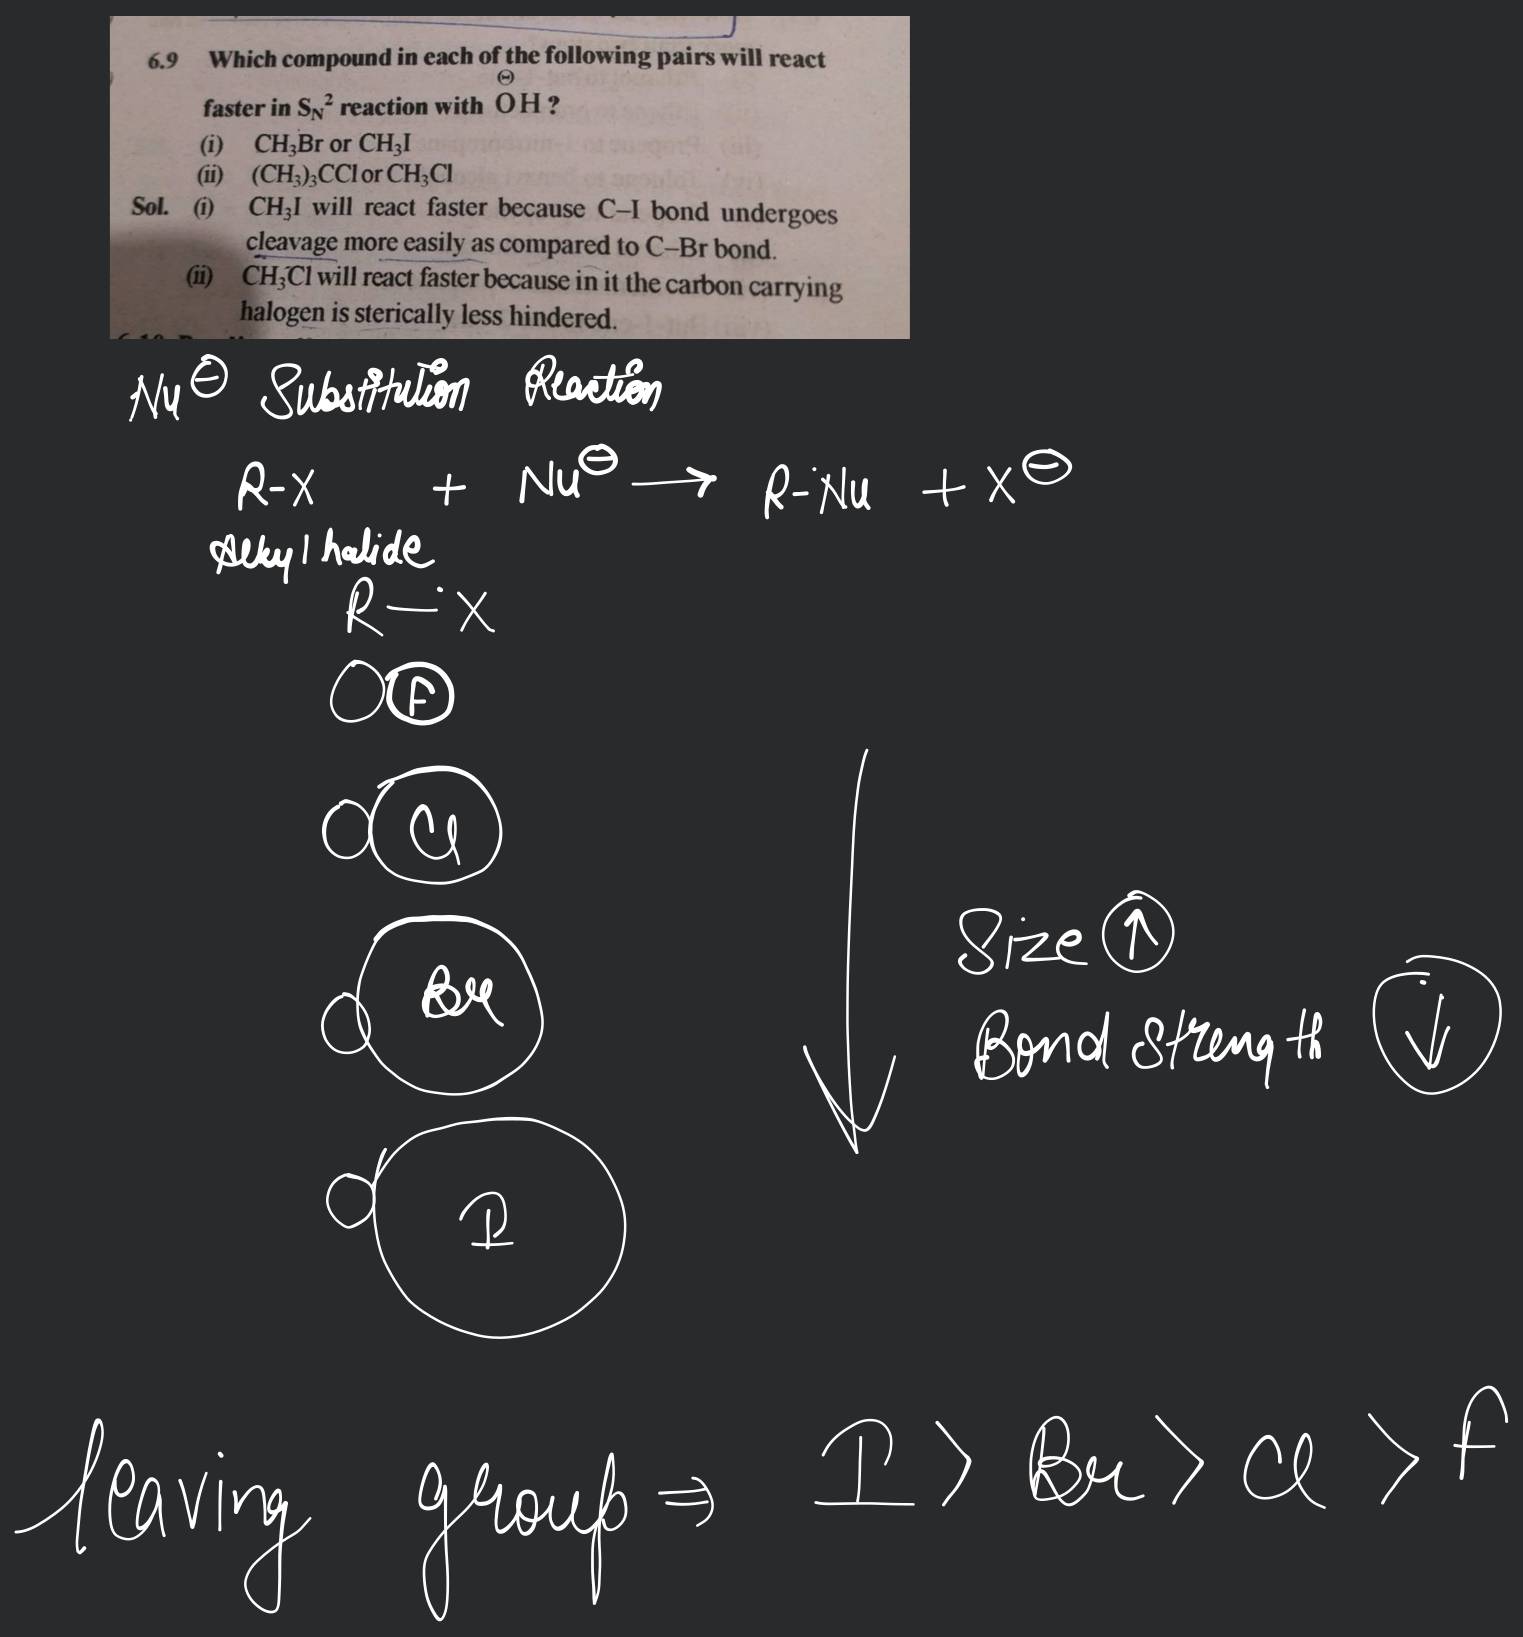 6.9 Which compound in each of the following pairs will react
faster in S_N² reaction with ⊖OH ?
(i) CH₃Br or CH₃I
(ii) (CH₃)₃CCl or CH₃Cl
Sol. (i) CH₃I will react faster because C–I bond undergoes
cleavage more easily as compared to C–Br bond.
(ii) CH₃Cl will react faster because in it the carbon carrying
halogen is sterically less hindered.
Nu⊖ Substitution Reaction
R-X + Nu⊖ → R-Nu + X⊖
Alkyl halide
R—X
F
Cl
Br
Size ↑
Bond Strength ↓
I
leaving group ⇒ I > Br > Cl > F